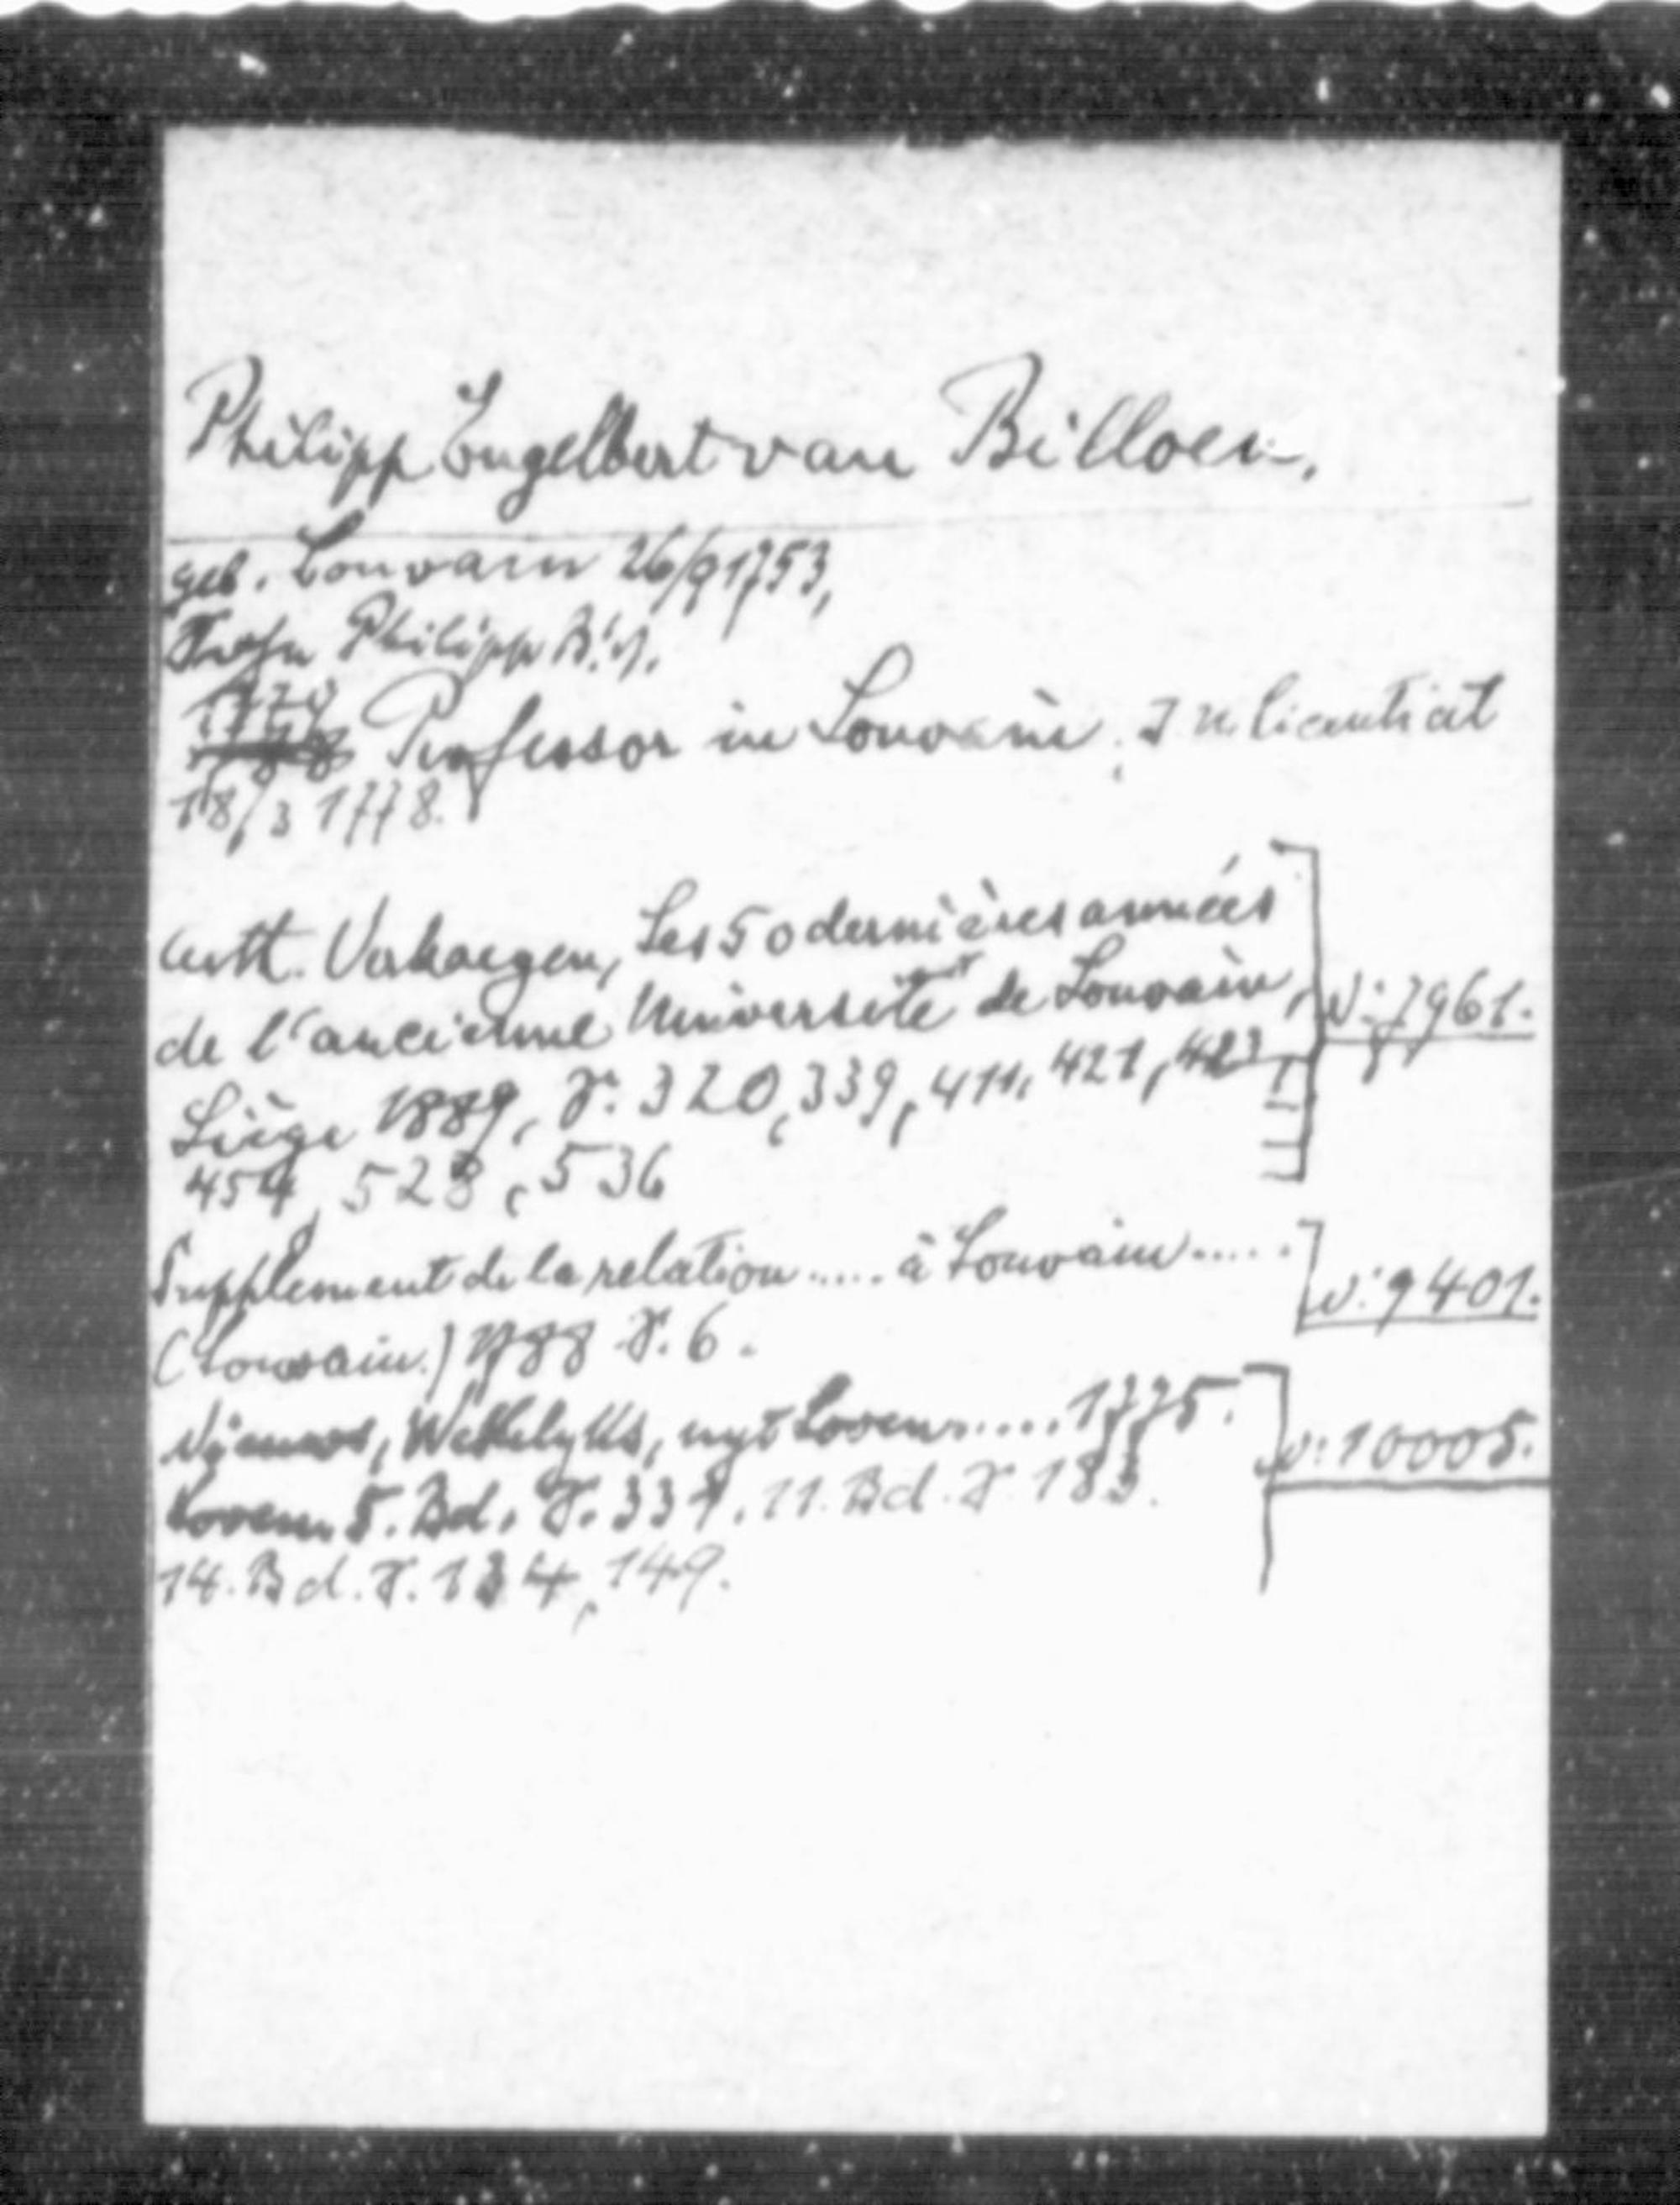 Philipp Engelbert van Billoen.
geb. Louvain 26/9 1753,
Sohn Philipp B.'s.
1778
Professor in Louvain. I. u. licentiat
18/3 1778.
Arth. Verhaegen, Les 50 dernières années
de l'ancienne Université de Louvain, N: 7961.
Liège 1889, S. 320, 339, 411, 421, 423,
454, 528, 536
Supplement de la relation ..... à Louvain .....
(Louvain) 1788 S. 6. N: 9401.
Nieuws, Wekelyks, uyt Loven .... 1775.
Loven 5. Bd. S. 331. 11. Bd. S. 183. N: 10005.
14. Bd. S. 134, 149.